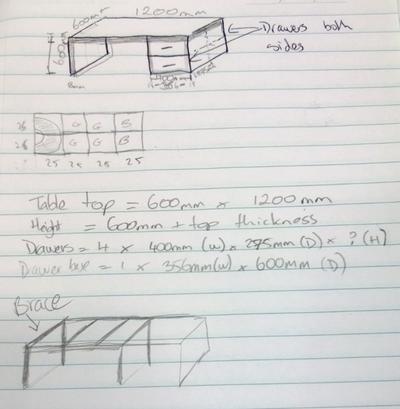 600mm
1200mm
600mm
Drawers both
sides
400mm
G G B
G G B
25 25 25 25
Table top = 600mm x 1200mm
Height = 600mm + top thickness
Drawers = 4 x 400mm (W) x 295mm (D) x ? (H)
Drawer base = 1 x 356mm(W) x 600mm (D)
Brace